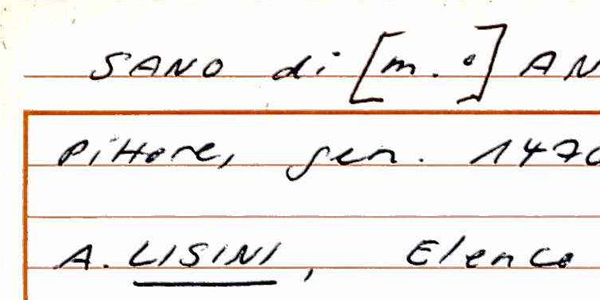 SANO di [m.°] AN
Pittore, gen. 1470
A. LISINI, Elenco